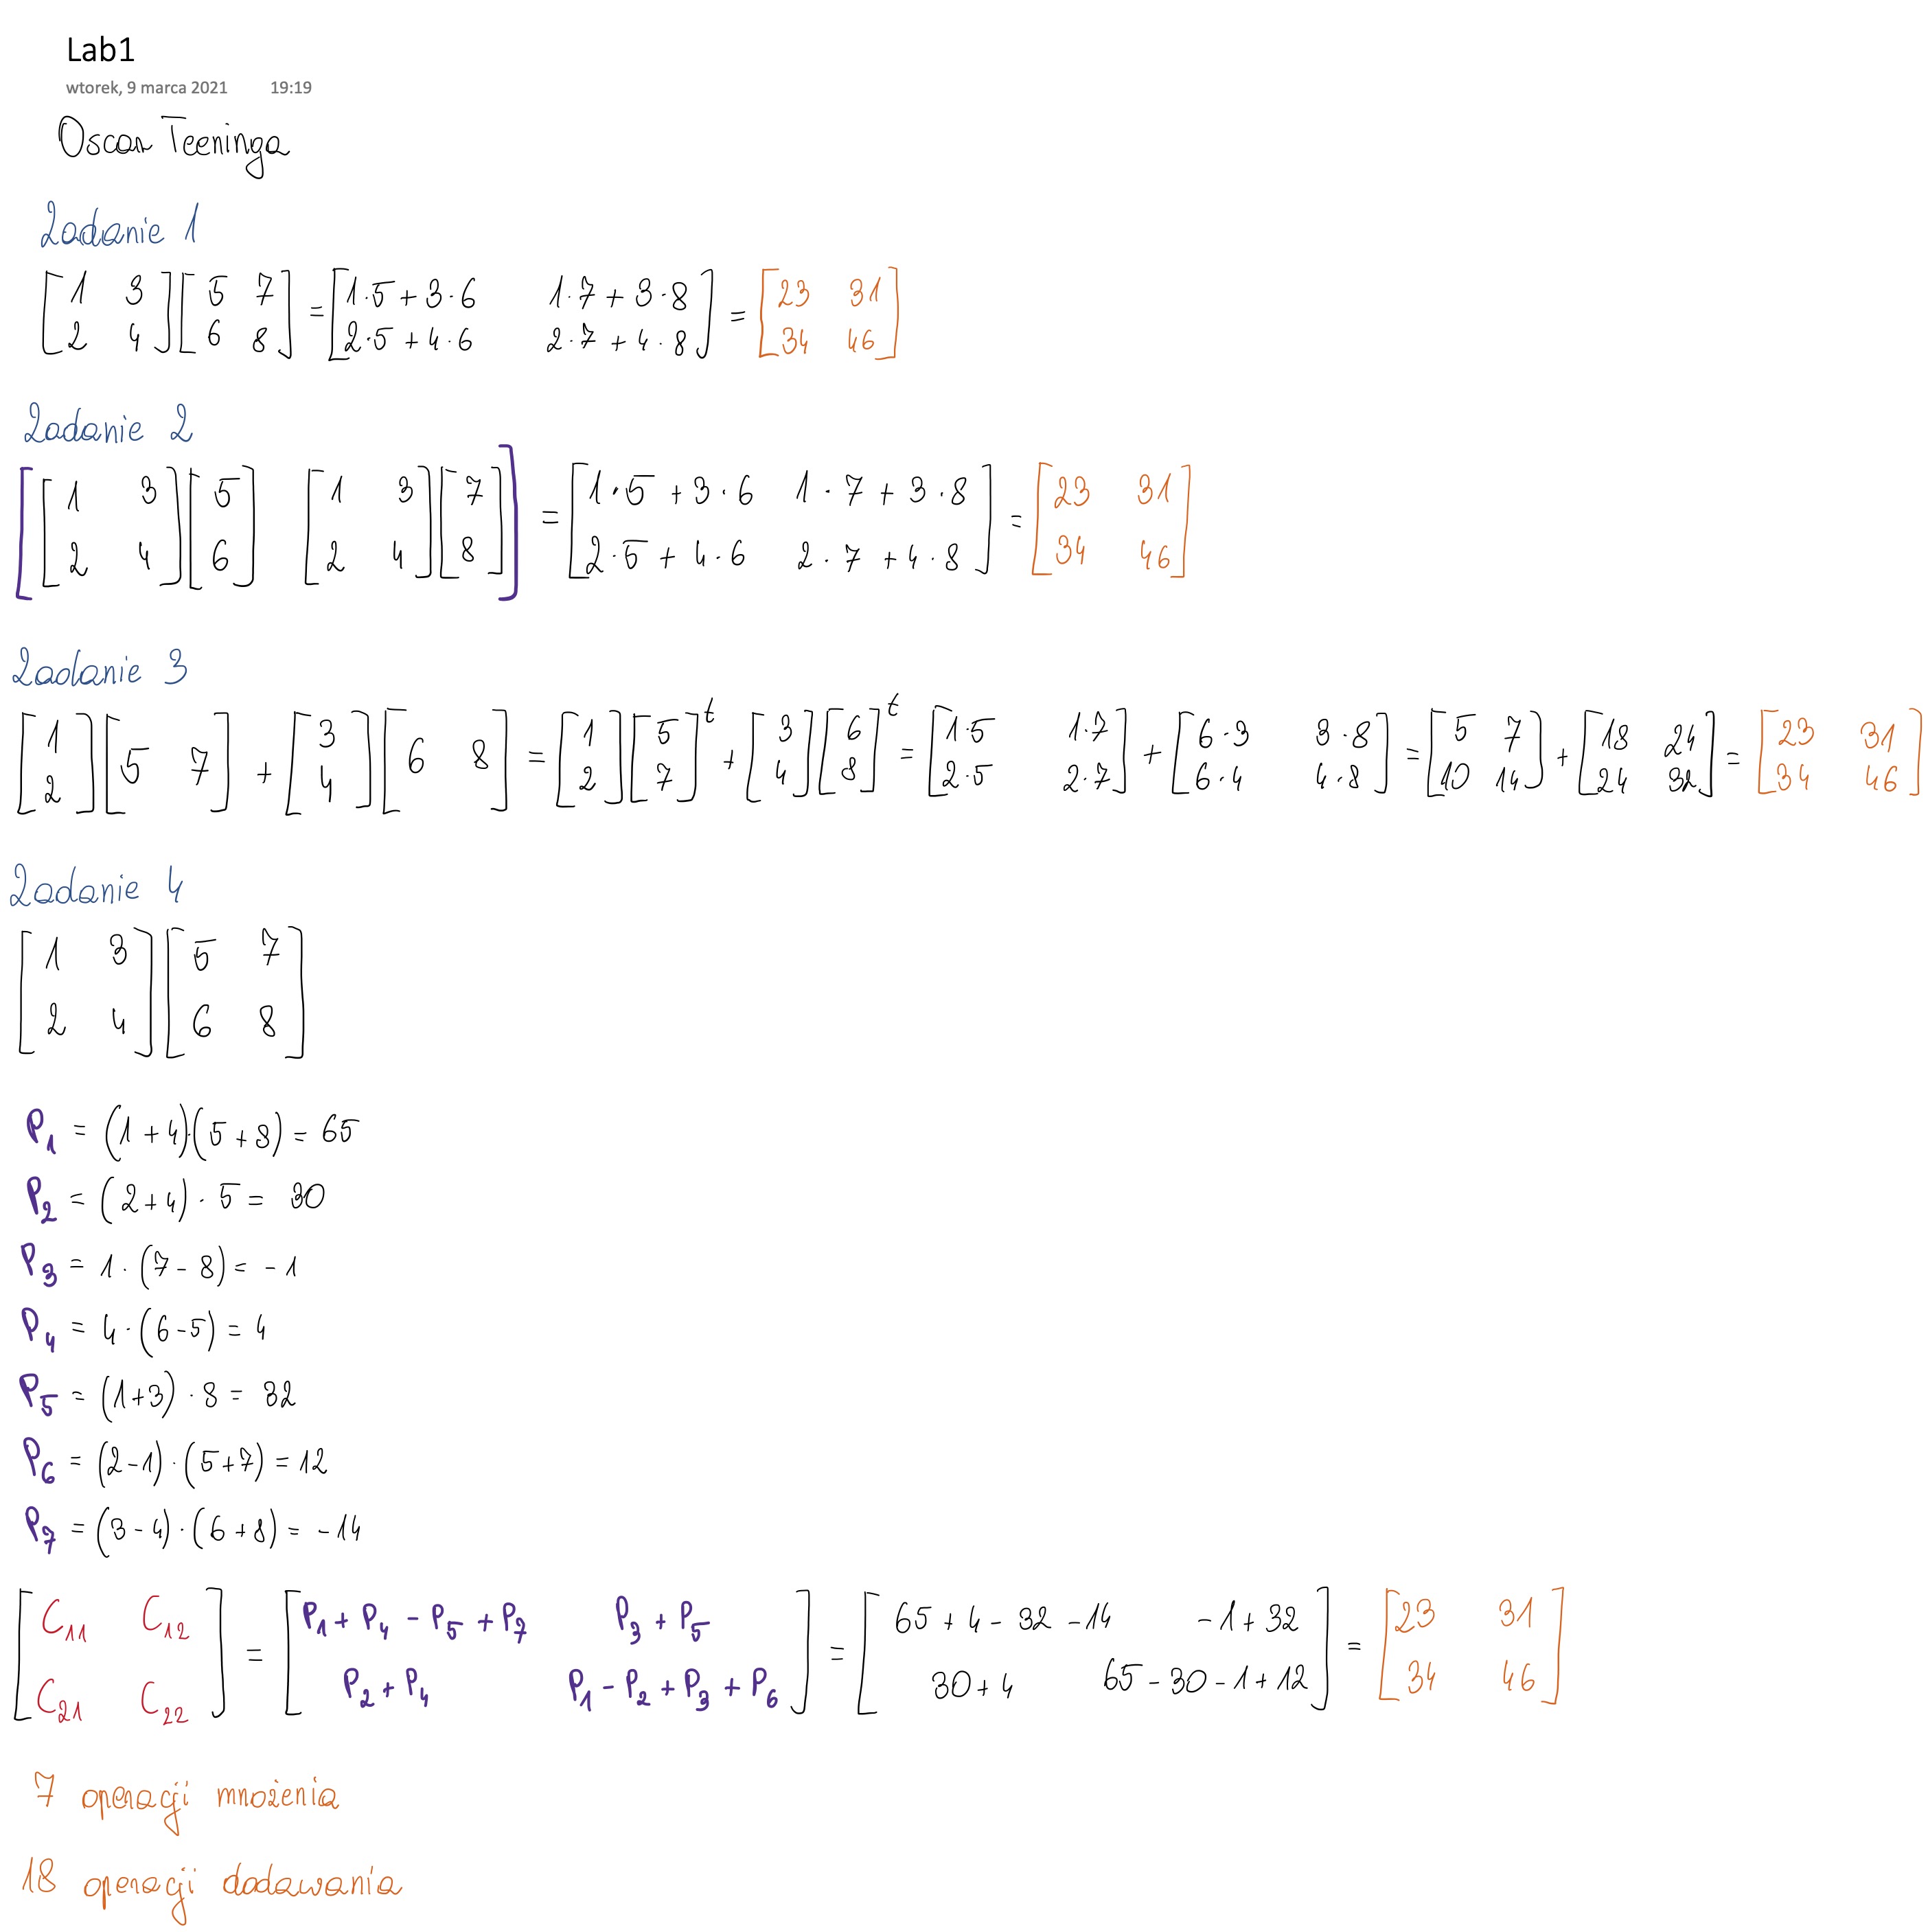 Lab1
wtorek, 9 marca 2021 19:19
Oscar Teeninga
Zadanie 1
[1 3; 2 4] [5 7; 6 8] = [1·5+3·6 1·7+3·8; 2·5+4·6 2·7+4·8] = [23 31; 34 46]
Zadanie 2
[[1 3; 2 4] [5; 6] [1 3; 2 4] [7; 8]] = [1·5+3·6 1·7+3·8; 2·5+4·6 2·7+4·8] = [23 31; 34 46]
Zadanie 3
[1; 2] [5 7] + [3; 4] [6 8] = [1; 2] [5; 7]^t + [3; 4] [6; 8]^t = [1·5 1·7; 2·5 2·7] + [6·3 3·8; 6·4 4·8] = [5 7; 10 14] + [18 24; 24 32] = [23 31; 34 46]
Zadanie 4
[1 3; 2 4] [5 7; 6 8]
P₁ = (1+4)·(5+8) = 65
P₂ = (2+4)·5 = 30
P₃ = 1·(7-8) = -1
P₄ = 4·(6-5) = 4
P₅ = (1+3)·8 = 32
P₆ = (2-1)·(5+7) = 12
P₇ = (3-4)·(6+8) = -14
[C₁₁ C₁₂; C₂₁ C₂₂] = [P₁+P₄-P₅+P₇ P₃+P₅; P₂+P₄ P₁-P₂+P₃+P₆] = [65+4-32-14 -1+32; 30+4 65-30-1+12] = [23 31; 34 46]
7 operacji mnożenia
18 operacji dodawania